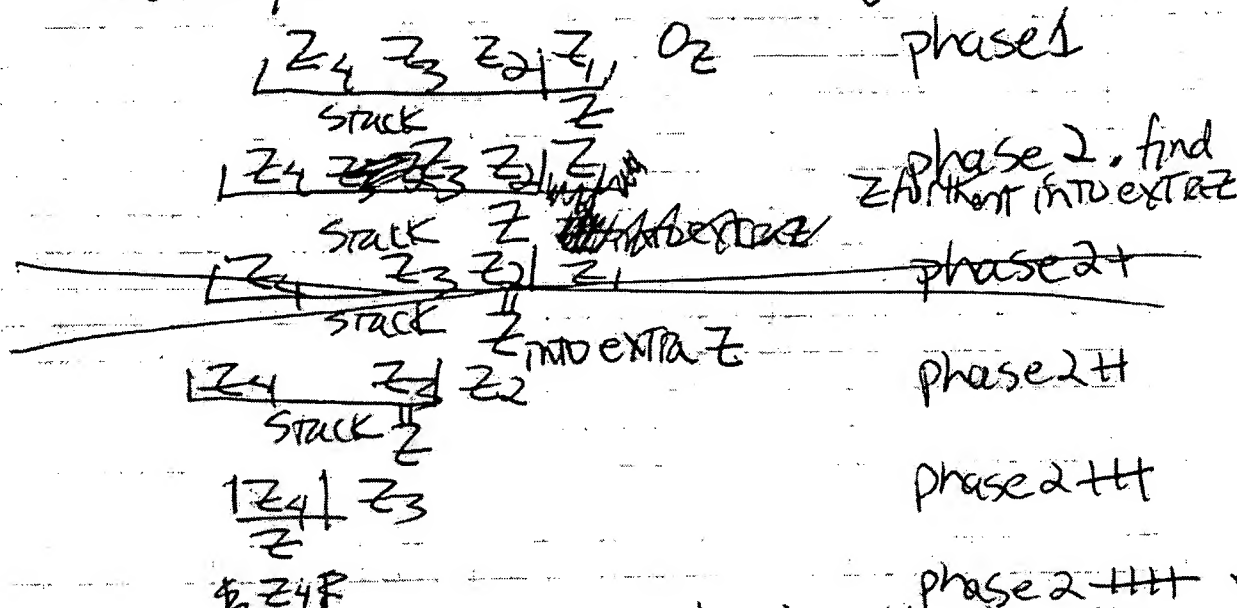 Z4 Z3 Z2 Z1 Oz phase 1
stack Z
Z4 Z3 Z2 Z1 phase 2. find
stack Z into extra Z
Z4 Z3 Z2 Z1 phase 2+
stack Z into extra Z
Z4 Z3 Z2 phase 2++
stack Z
Z4 Z3 phase 2+++
Z
Z4 phase 2++++